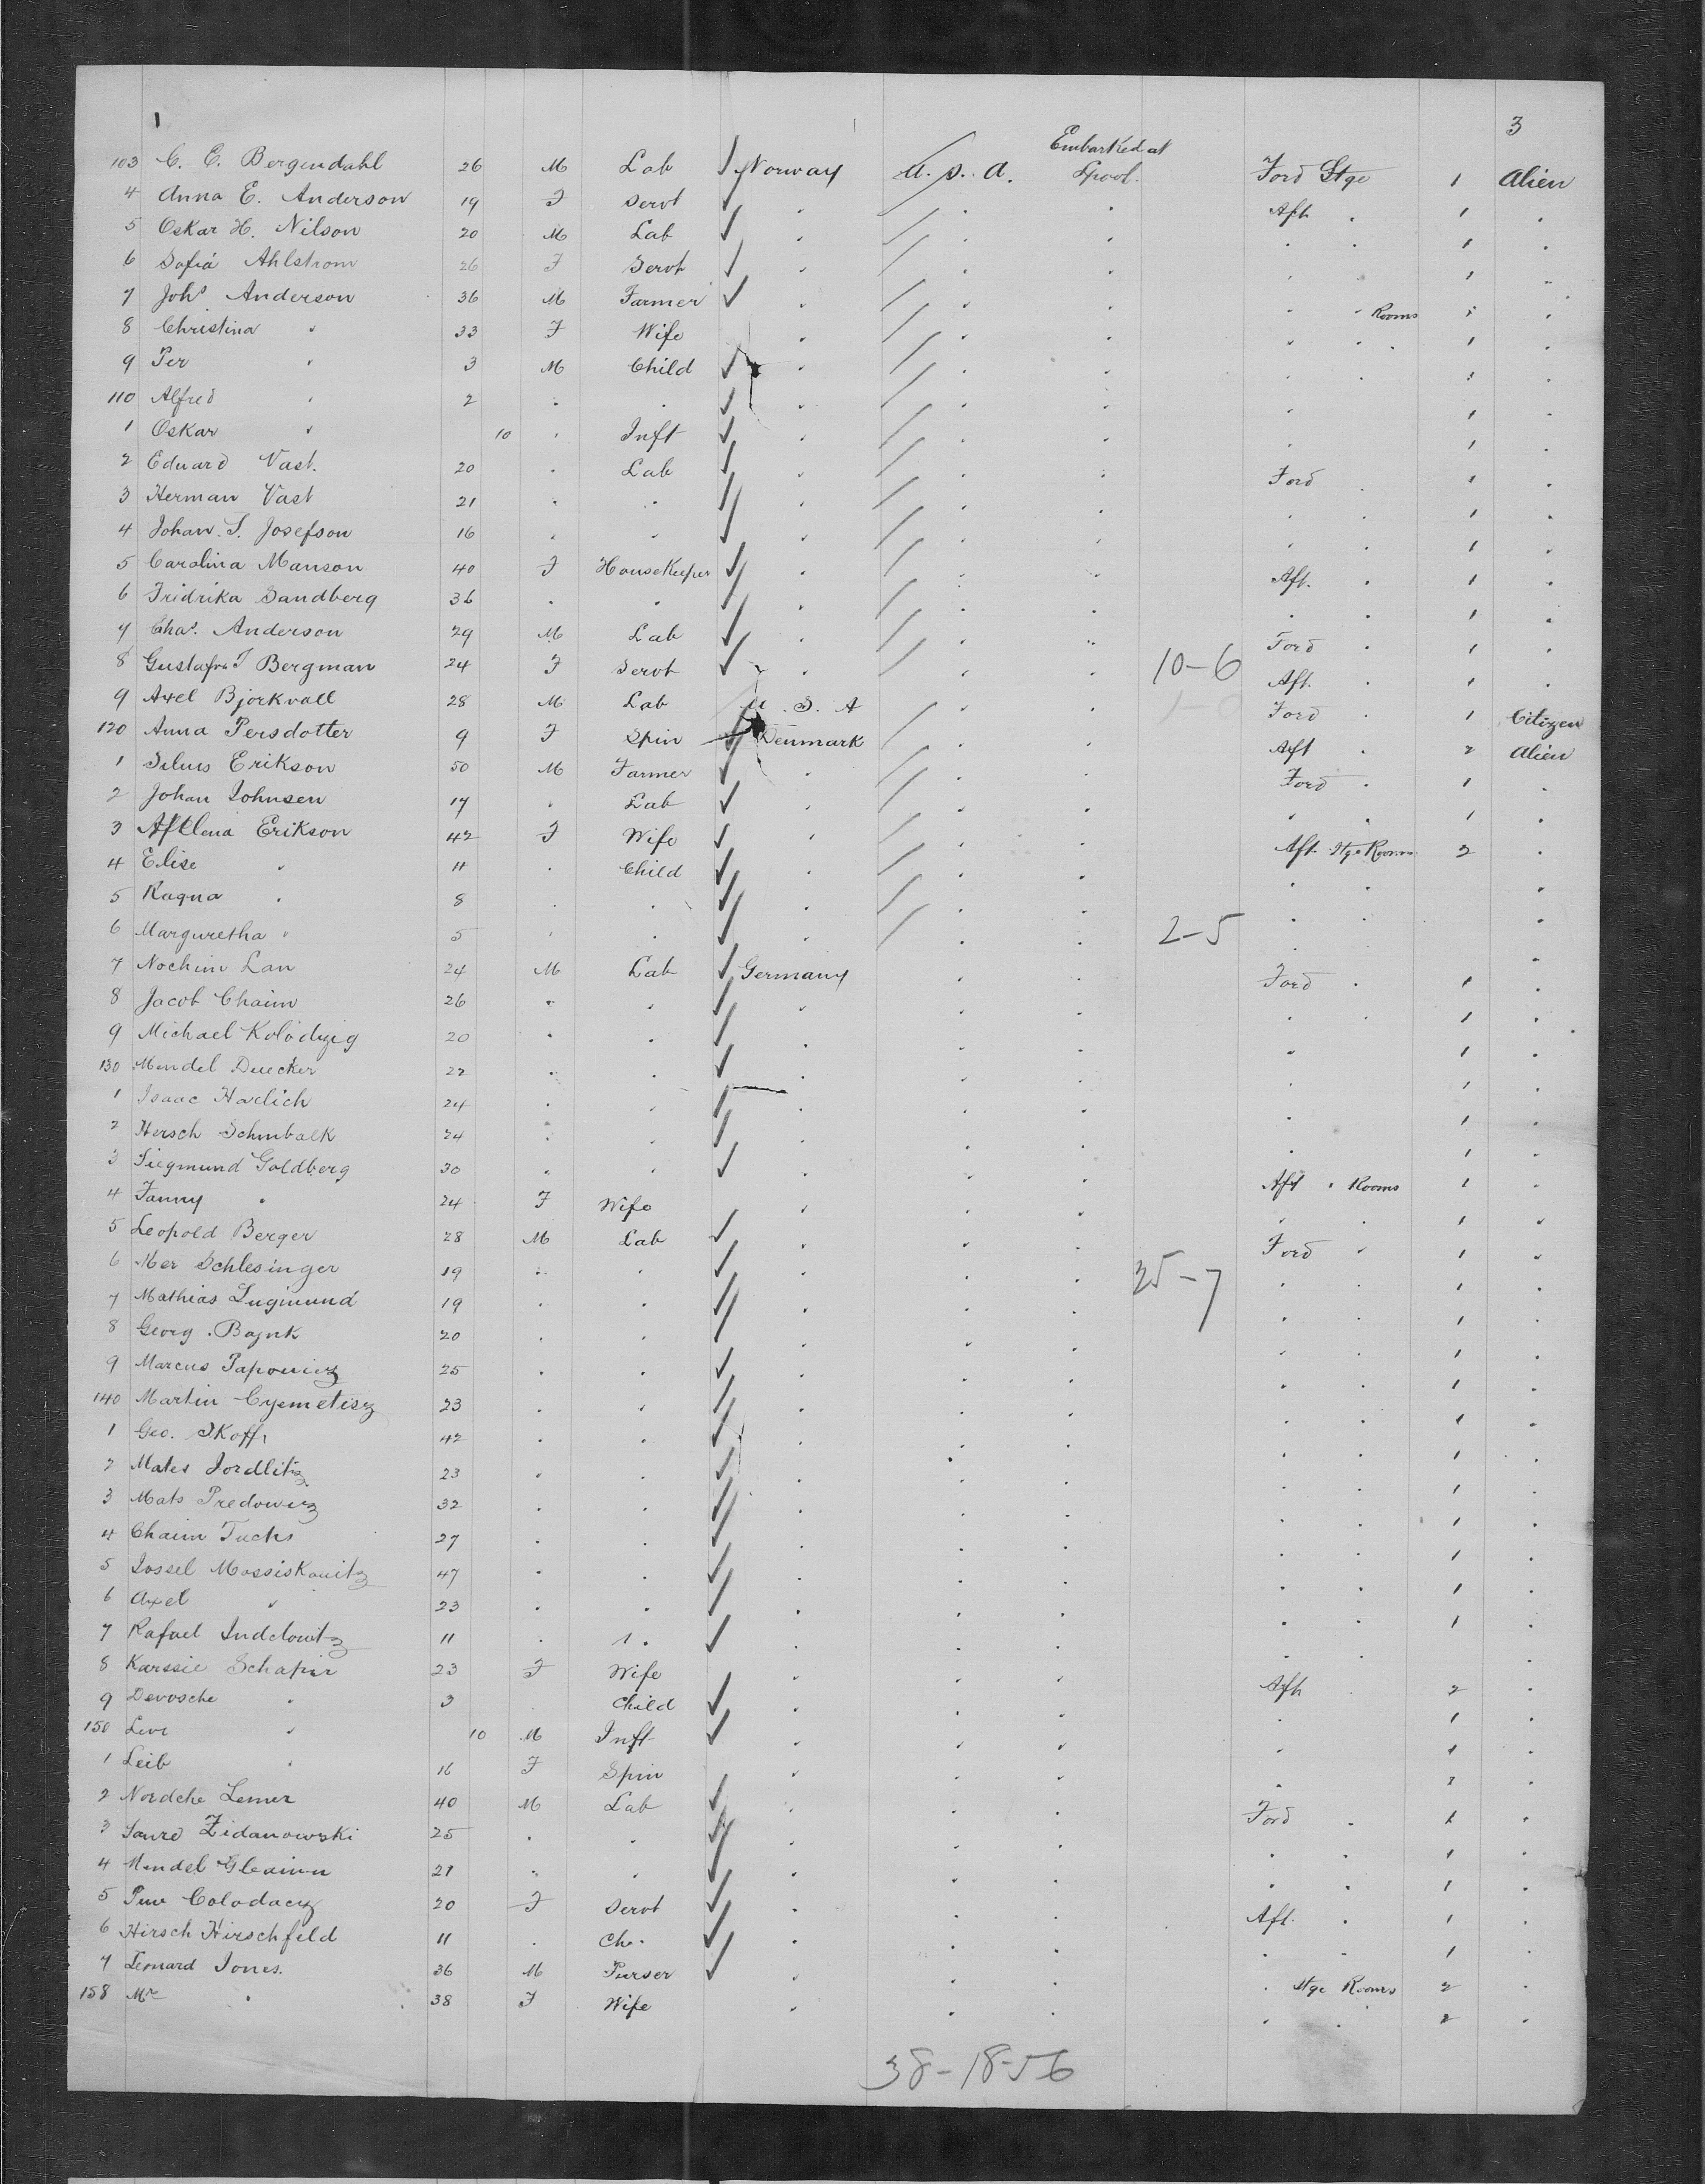 1 3
Embarked at
103 C. E. Bergendahl 26 M Lab Norway U. S. A. Lpool. Ford Stge 1 Alien
4 Anna E. Anderson 19 F Servt " " " Aft " 1 "
5 Oskar H. Nilson 20 M Lab " " " " " 1 "
6 Sofia Ahlstrom 26 F Servt " " " " " 1 "
7 Johs Anderson 36 M Farmer " " " " " Rooms 1 "
8 Christina " 33 F Wife " " " " " " 1 "
9 Per " 3 M Child " " " " " 1 "
110 Alfred " 2 " " " " " " 1 "
1 Oskar " 10 " Inft " " " " 1 "
2 Eduard Vast. 20 " Lab " " " Ford " 1 "
3 Herman Vast 21 " " " " " " " 1 "
4 Johan S. Josefson 16 " " " " " " " 1 "
5 Carolina Manson 40 F HouseKeeper " " " Aft. " 1 "
6 Fridrika Sandberg 36 " " " " " " " 1 "
7 Chas. Anderson 29 M Lab " " " Ford " 1 "
8 Gustafva J Bergman 24 F Servt " " " 10-6 Aft. " 1 "
9 Axel Bjorkvall 28 M Lab U. S. A " " Ford " 1 Citizen
120 Anna Persdotter 9 F Spin Denmark " " Aft " 2 Alien
1 Erikson 50 M Farmer " " " Ford " 1 "
2 Johan Johnsen 17 " Lab " " " " " 1 "
3 Erikson 42 F Wife " " " Aft Stge Rooms 2 "
4 Elise " 11 " Child " " " " " "
5 Ragna " 8 " " " " " " " "
6 Marguretha " 5 " " " " " 2-5 " "
7 Nochim Lan 24 M Lab Germany " " Ford " 1 "
8 Jacob Chaim 26 " " " " " " " 1 "
9 Michael Kolodizig 20 " " " " " " 1 "
130 Mendel Duecker 22 " " " " " " 1 "
1 Isaac Havlich 24 " " " " " " 1 "
2 Hersch Schmbalk 24 " " " " " " 1 "
3 Siegmund Goldberg 30 " " " " " Aft " Rooms 1 "
4 Fanny " 24 F Wife " " " " " 1 "
5 Leopold Berger 28 M Lab " " " Ford " 1 "
6 Mer Schlesinger 19 " " " " " 35-7 " " 1 "
7 Mathias Sugmund 19 " " " " " " " 1 "
8 Georg. Bajnk 20 " " " " " " " 1 "
9 Marcus Papowicz 25 " " " " " " " 1 "
140 Martin Cyemetisz 23 " " " " " " " 1 "
1 Geo. 42 " " " " " " " 1 "
2 Mates Jordlitz 23 " " " " " " " 1 "
3 Mats Predowicz 32 " " " " " " " 1 "
4 Chaim Fuchs 27 " " " " " " " 1 "
5 Jossel Mossiskowitz 47 " " " " " " " 1 "
6 Axel " 23 " " " " " " " 1 "
7 Rafael Indelowitz 11 " 1. " " " " " "
8 Karssie Schapir 23 F Wife " " " Aft " 2 "
9 Devosche " 3 " Child " " " " 1 "
150 " 10 M Inft " " " " 1 "
1 Leib " 16 F Spin " " " " 1 "
2 Nordche Lemer 40 M Lab " " " Ford " 1 "
3 Zidanowski 25 " " " " " " " 1 "
4 Mendel 21 " " " " " " " 1 "
5 Colodacz 20 F Servt " " " Aft. " 1 "
6 Hirsch Hirschfeld 11 " Ch. " " " " " 1 "
7 Leonard Jones. 36 M Purser " " " " Stge Rooms 2 "
158 Mrs " 38 F Wife " " " " " 2 "
38-18-56